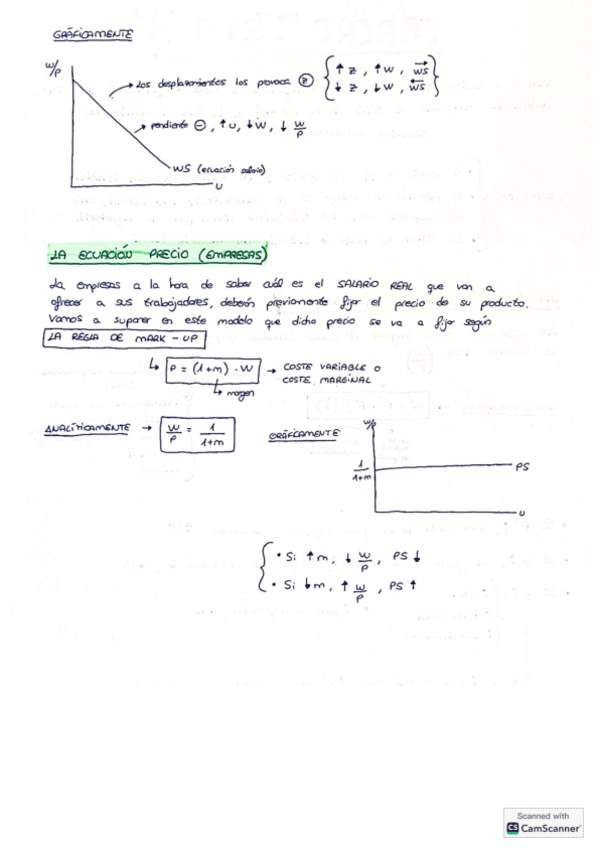 GRÁFICAMENTE
W/P
Los desplazamientos los provoca Z { ↑ Z, ↑ W, WS→
↓ Z, ↓ W, WS← }
pendiente ⊖, ↑ U, ↓ W, ↓ W/P
WS (ecuación salario)
U
LA ECUACIÓN PRECIO (EMPRESAS)
La empresas a la hora de saber cuál es el SALARIO REAL que van a
ofrecer a sus trabajadores, deberán previamente fijar el precio de su producto.
Vamos a suponer en este modelo que dicho precio se va a fijar según
LA REGLA DE MARK-UP
↳ P = (1+m) · W → COSTE VARIABLE O
COSTE MARGINAL
↳ margen
ANALÍTICAMENTE → W/P = 1/(1+m)
GRÁFICAMENTE
W/P
1/(1+m)
PS
U
• Si ↑m, ↓ W/P, PS ↓
• Si ↓m, ↑ W/P, PS ↑
Scanned with
CS CamScanner